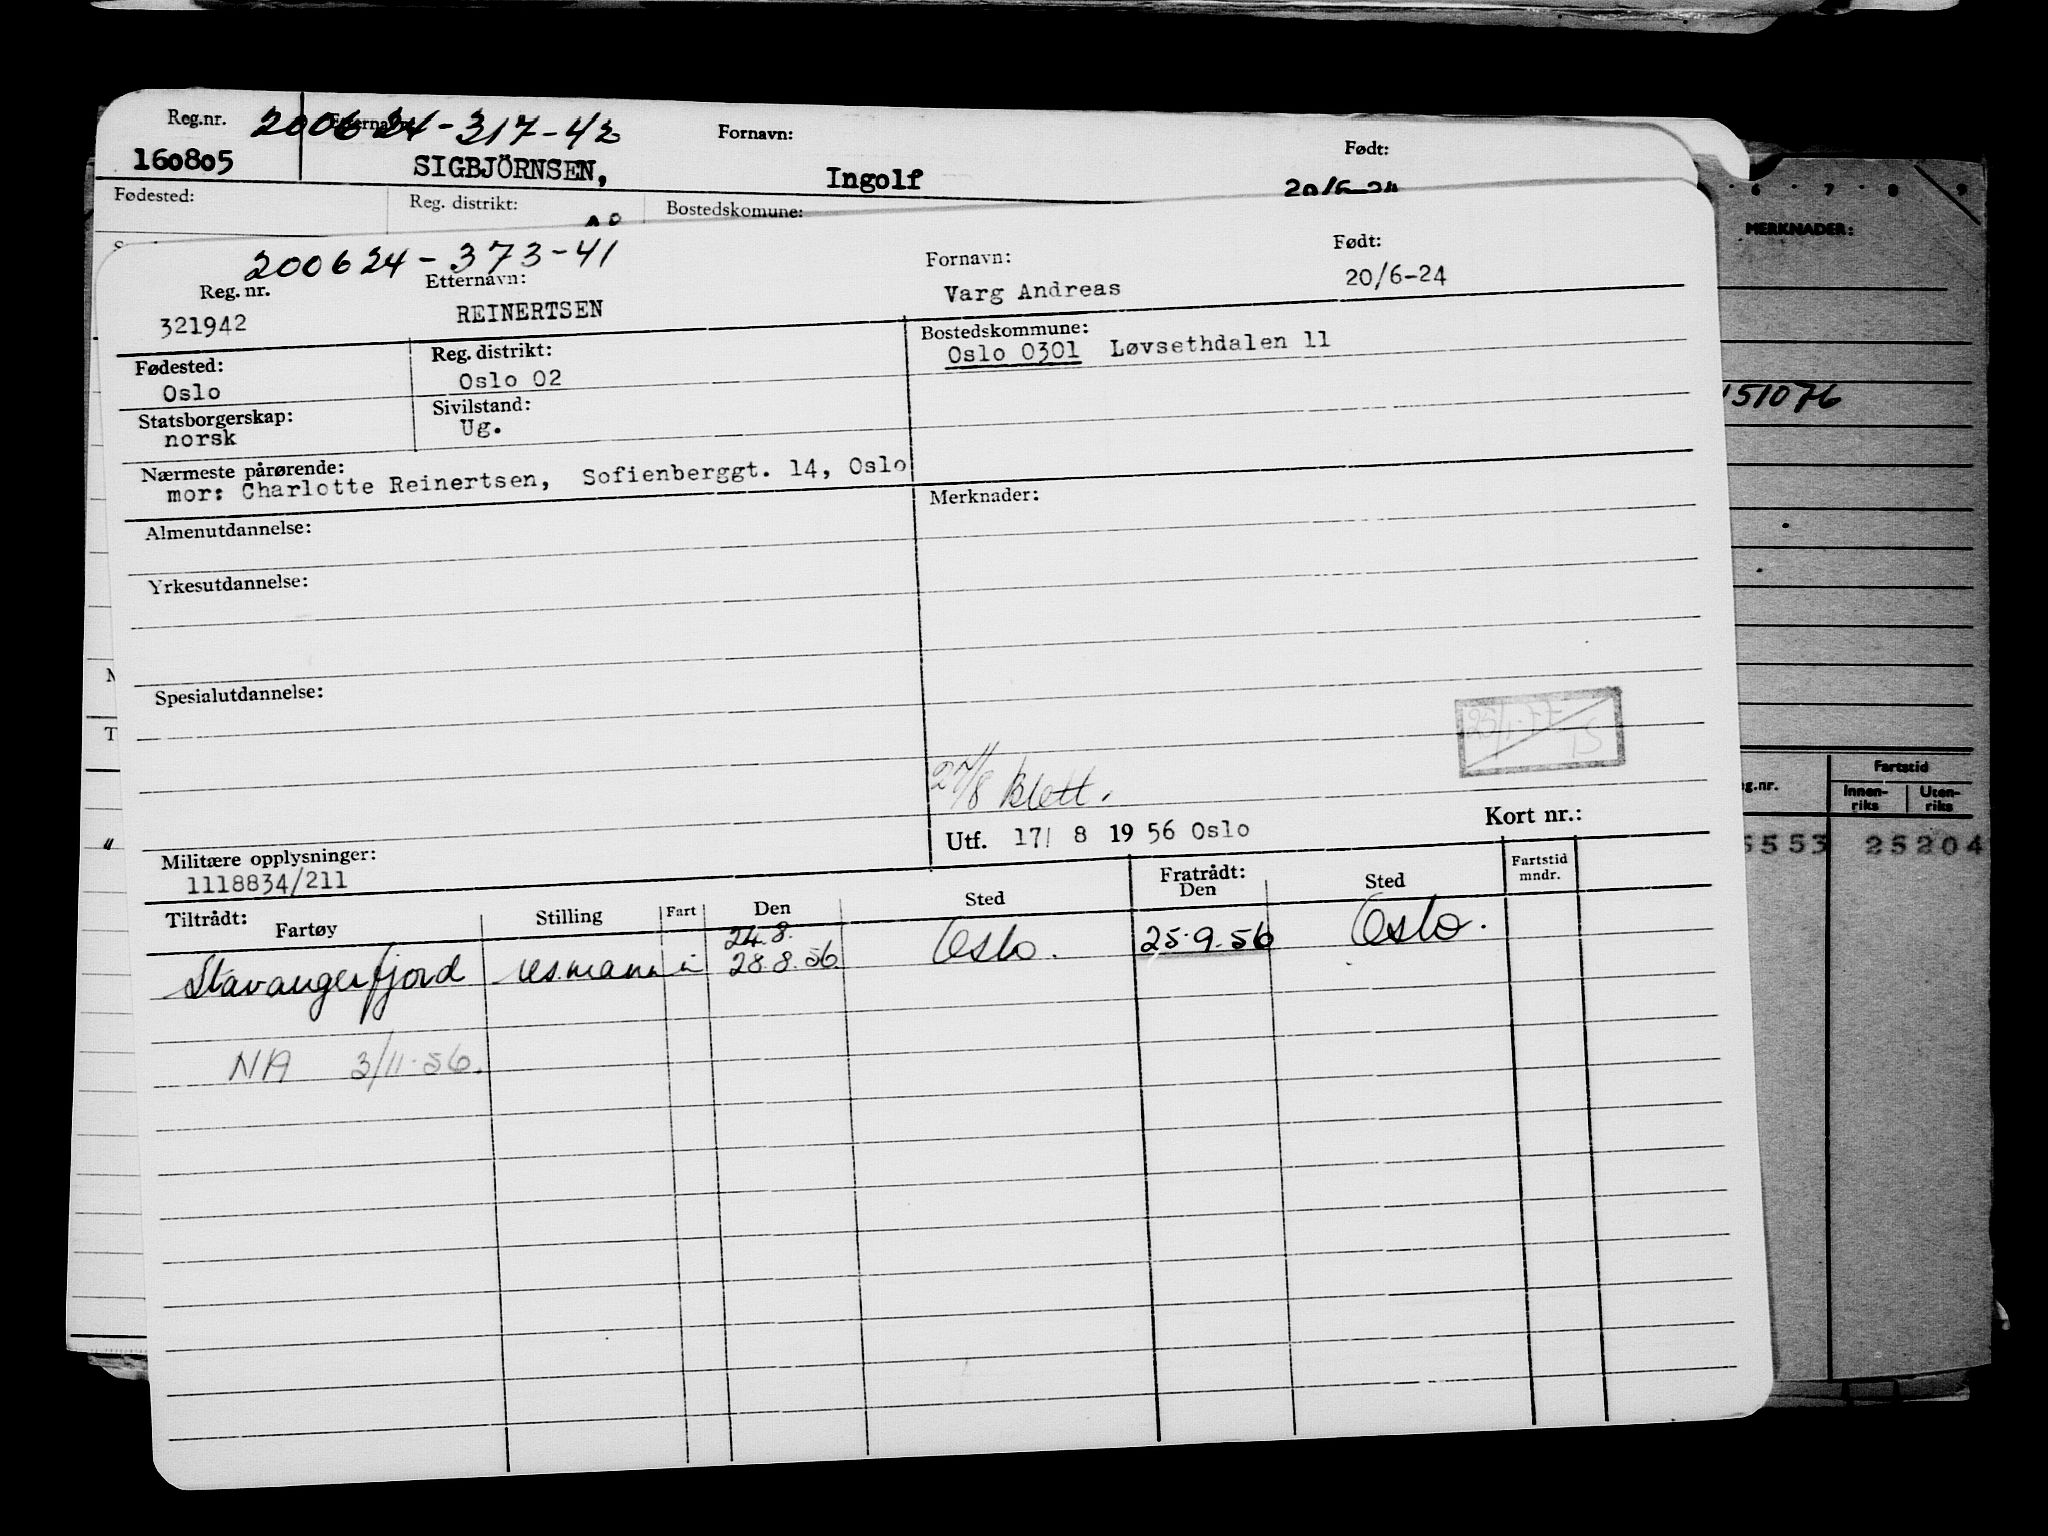 Reg.nr. 200624-317-42 Fornavn: Født:
160805 SIGBJÖRNSEN, Ingolf 20/6-24
Fødested: Reg. distrikt: Bostedskomune:
200624-373-41
Reg. nr. Etternavn: Fornavn: Født:
321942 REINERTSEN Varg Andreas 20/6-24
Fødested: Reg. distrikt: Bostedskommune:
Oslo Oslo 02 Oslo 0301 Løvsethdalen 11
Statsborgerskap: Sivilstand:
norsk Ug.
Nærmeste pårørende:
mor: Charlotte Reinertsen, Sofienberggt. 14, Oslo
Almenutdannelse: Merknader:
Yrkesutdannelse:
Spesialutdannelse:
27/8 klett.
Utf. 17/ 8 19 56 Oslo Kort nr.:
Militære opplysninger:
1118834/211
Tiltrådt: Fratrådt:
Fartøy Stilling Fart Den Sted Den Sted Fartstid mndr.
24.8.
Stavangerfjord 28.8.56. Oslo. 25.9.56 Oslo.
NA 3/11-56.
6 7 8 9
MERKNADER:
151076
Fartstid
g.nr. Innen-riks Uten-riks
5553 25204